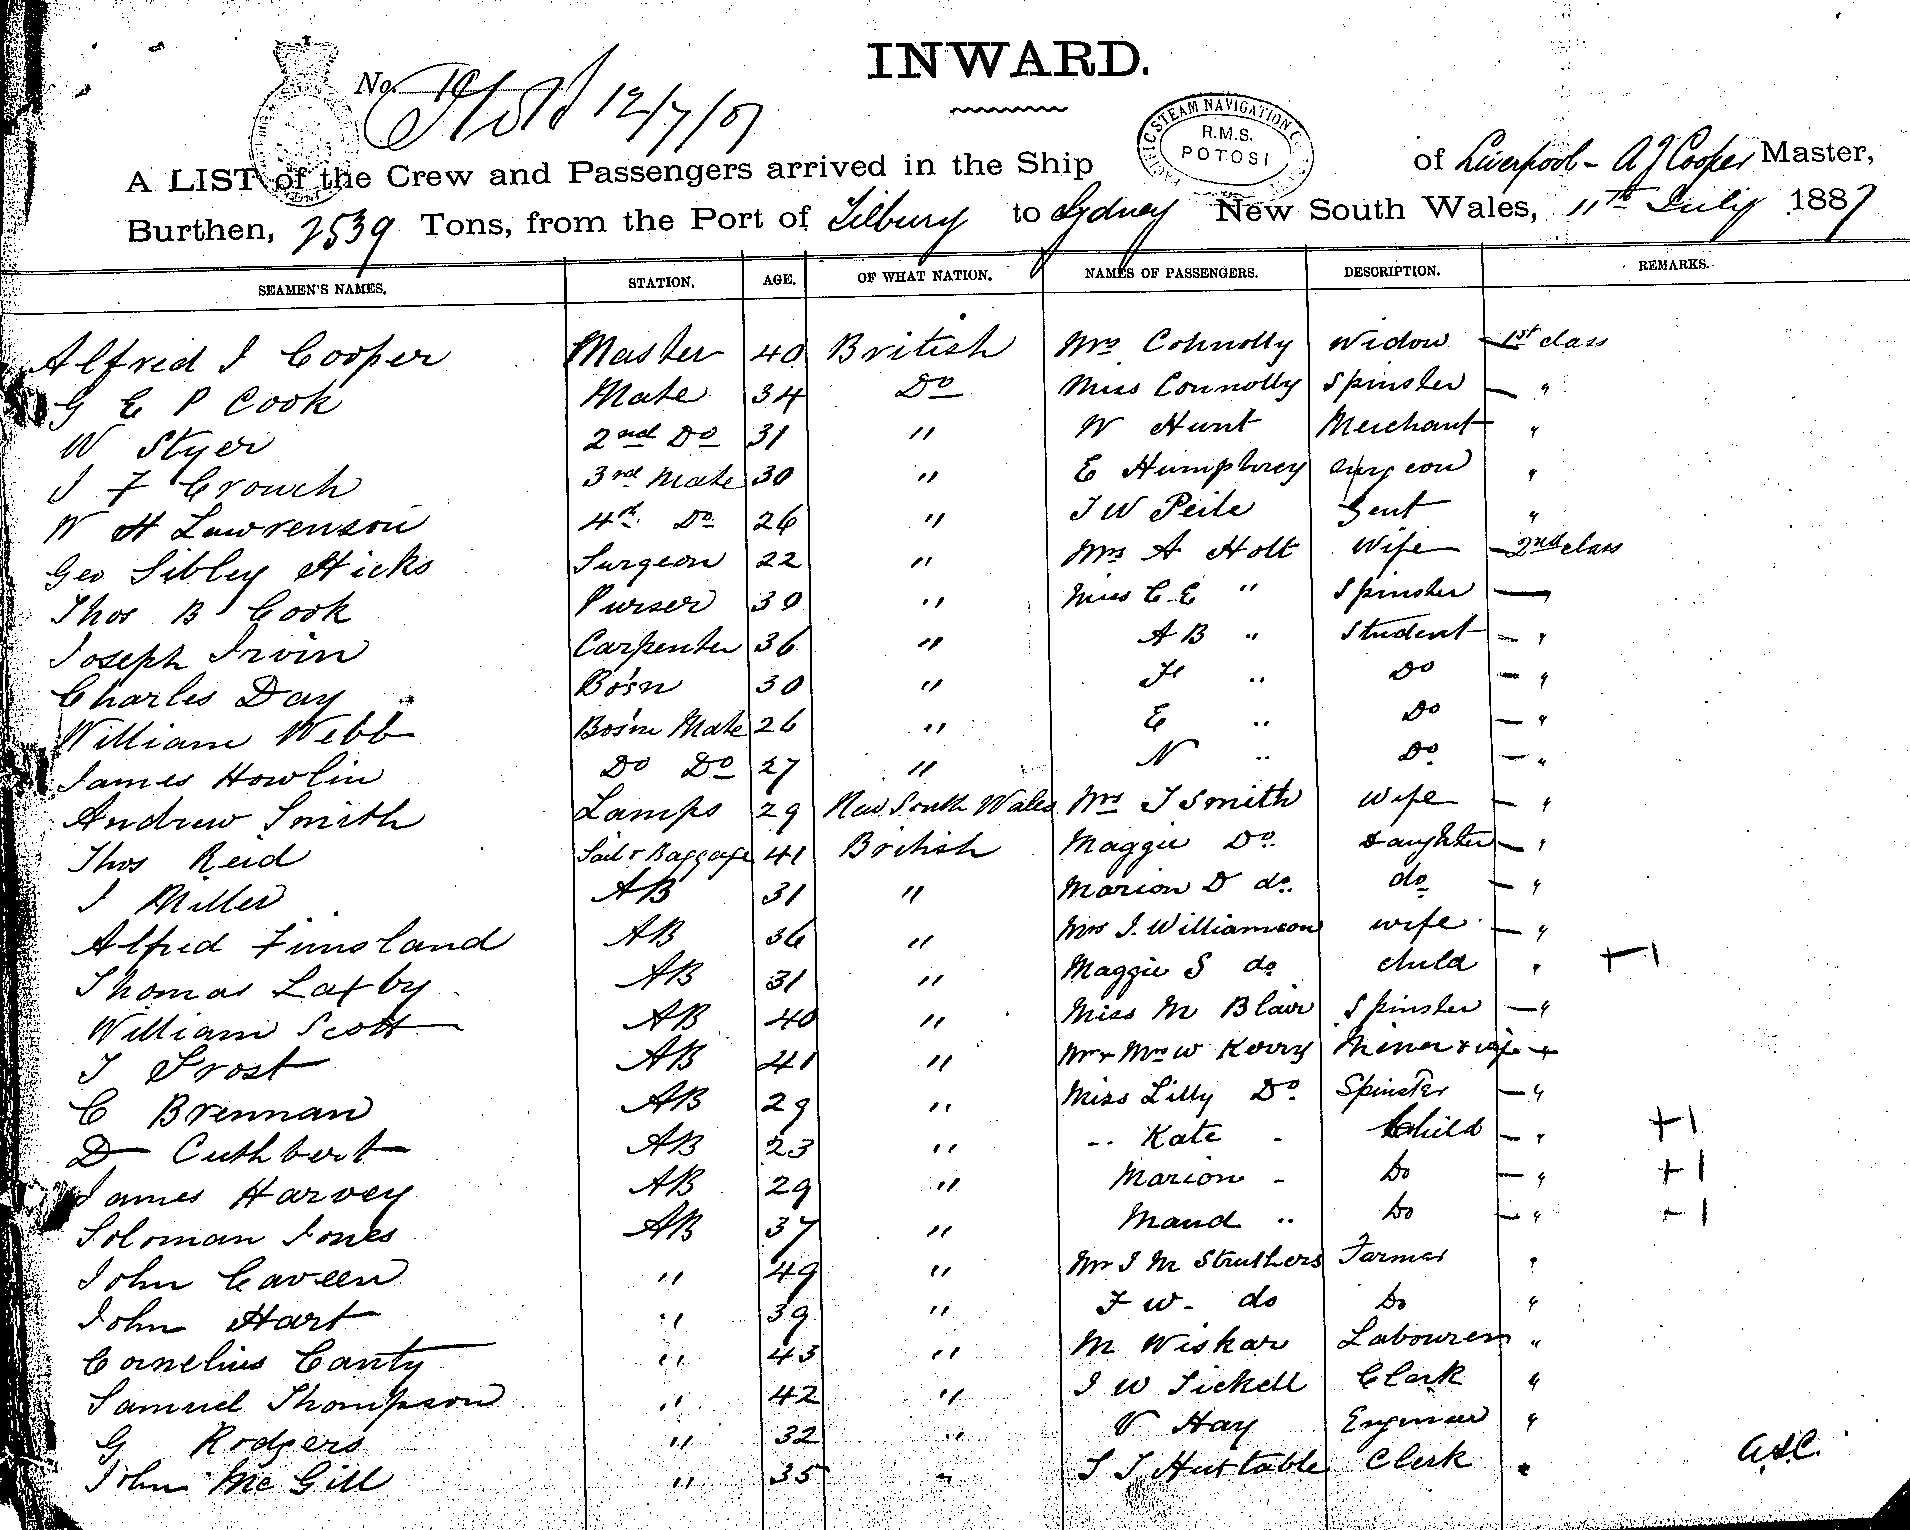 INWARD.
No.
12/7/87
PACIFIC STEAM NAVIGATION Co
R.M.S.
POTOSI
A LIST of the Crew and Passengers arrived in the Ship of Liverpool - A J Cooper Master,
Burthen, 2539 Tons, from the Port of Tilbury to Sydney New South Wales, 11th July 1887
SEAMEN'S NAMES. STATION. AGE. OF WHAT NATION. NAMES OF PASSENGERS. DESCRIPTION. REMARKS.
Alfred J Cooper Master 40 British Mrs Connolly Widow — 1st class
G E P Cook Mate 34 Do Miss Connolly Spinster — "
W Styer 2nd Do 31 " W Hunt Merchant "
J F Crouch 3rd Mate 30 " E Humphrey Surgeon "
W H Lawrenson 4th Do 26 " J W Peile Gent "
Geo Sibley Hicks Surgeon 22 " Mrs A Holt Wife — 2nd class
Thos B Cook Purser 39 " Miss C E " Spinster —
Joseph Irvin Carpenter 36 " A B " Student — "
Charles Day Bo'sn 30 " F " Do — "
William Webb Bos'n Mate 26 " E " Do — "
James Howlin Do Do 27 " N " Do — "
Andrew Smith Lamps 29 New South Wales Mrs J Smith Wife — "
Thos Reid Sail & Baggage 41 British Maggie Do Daughter — "
J Miller AB 31 " Marion D do do — "
Alfred Fimsland AB 36 " Mrs J. Williamson wife — "
Thomas Laxby AB 31 " Maggie S do child " +1
William Scott AB 40 " Miss M Blair Spinster — "
J Frost AB 41 " Mr & Mrs W Kerry Miner & wife — +
C Brennan AB 29 " Miss Lilly Do Spinster — "
D Cuthbert AB 23 " " Kate " Child — " +1
James Harvey AB 29 " Marion " Do — " +1
Soloman Jones AB 37 " Maud " Do — " -1
John Caveen " 49 " Mr J M Struthers Farmer "
John Hart " 39 " F W. do Do "
Cornelius Canty " 43 " M Wiskar Labourer "
Samuel Thompson " 42 " J W Tickell Clerk "
G Rodgers " 32 " V Hay Engineer "
John McGill " 35 " S J Huxtable Clerk "